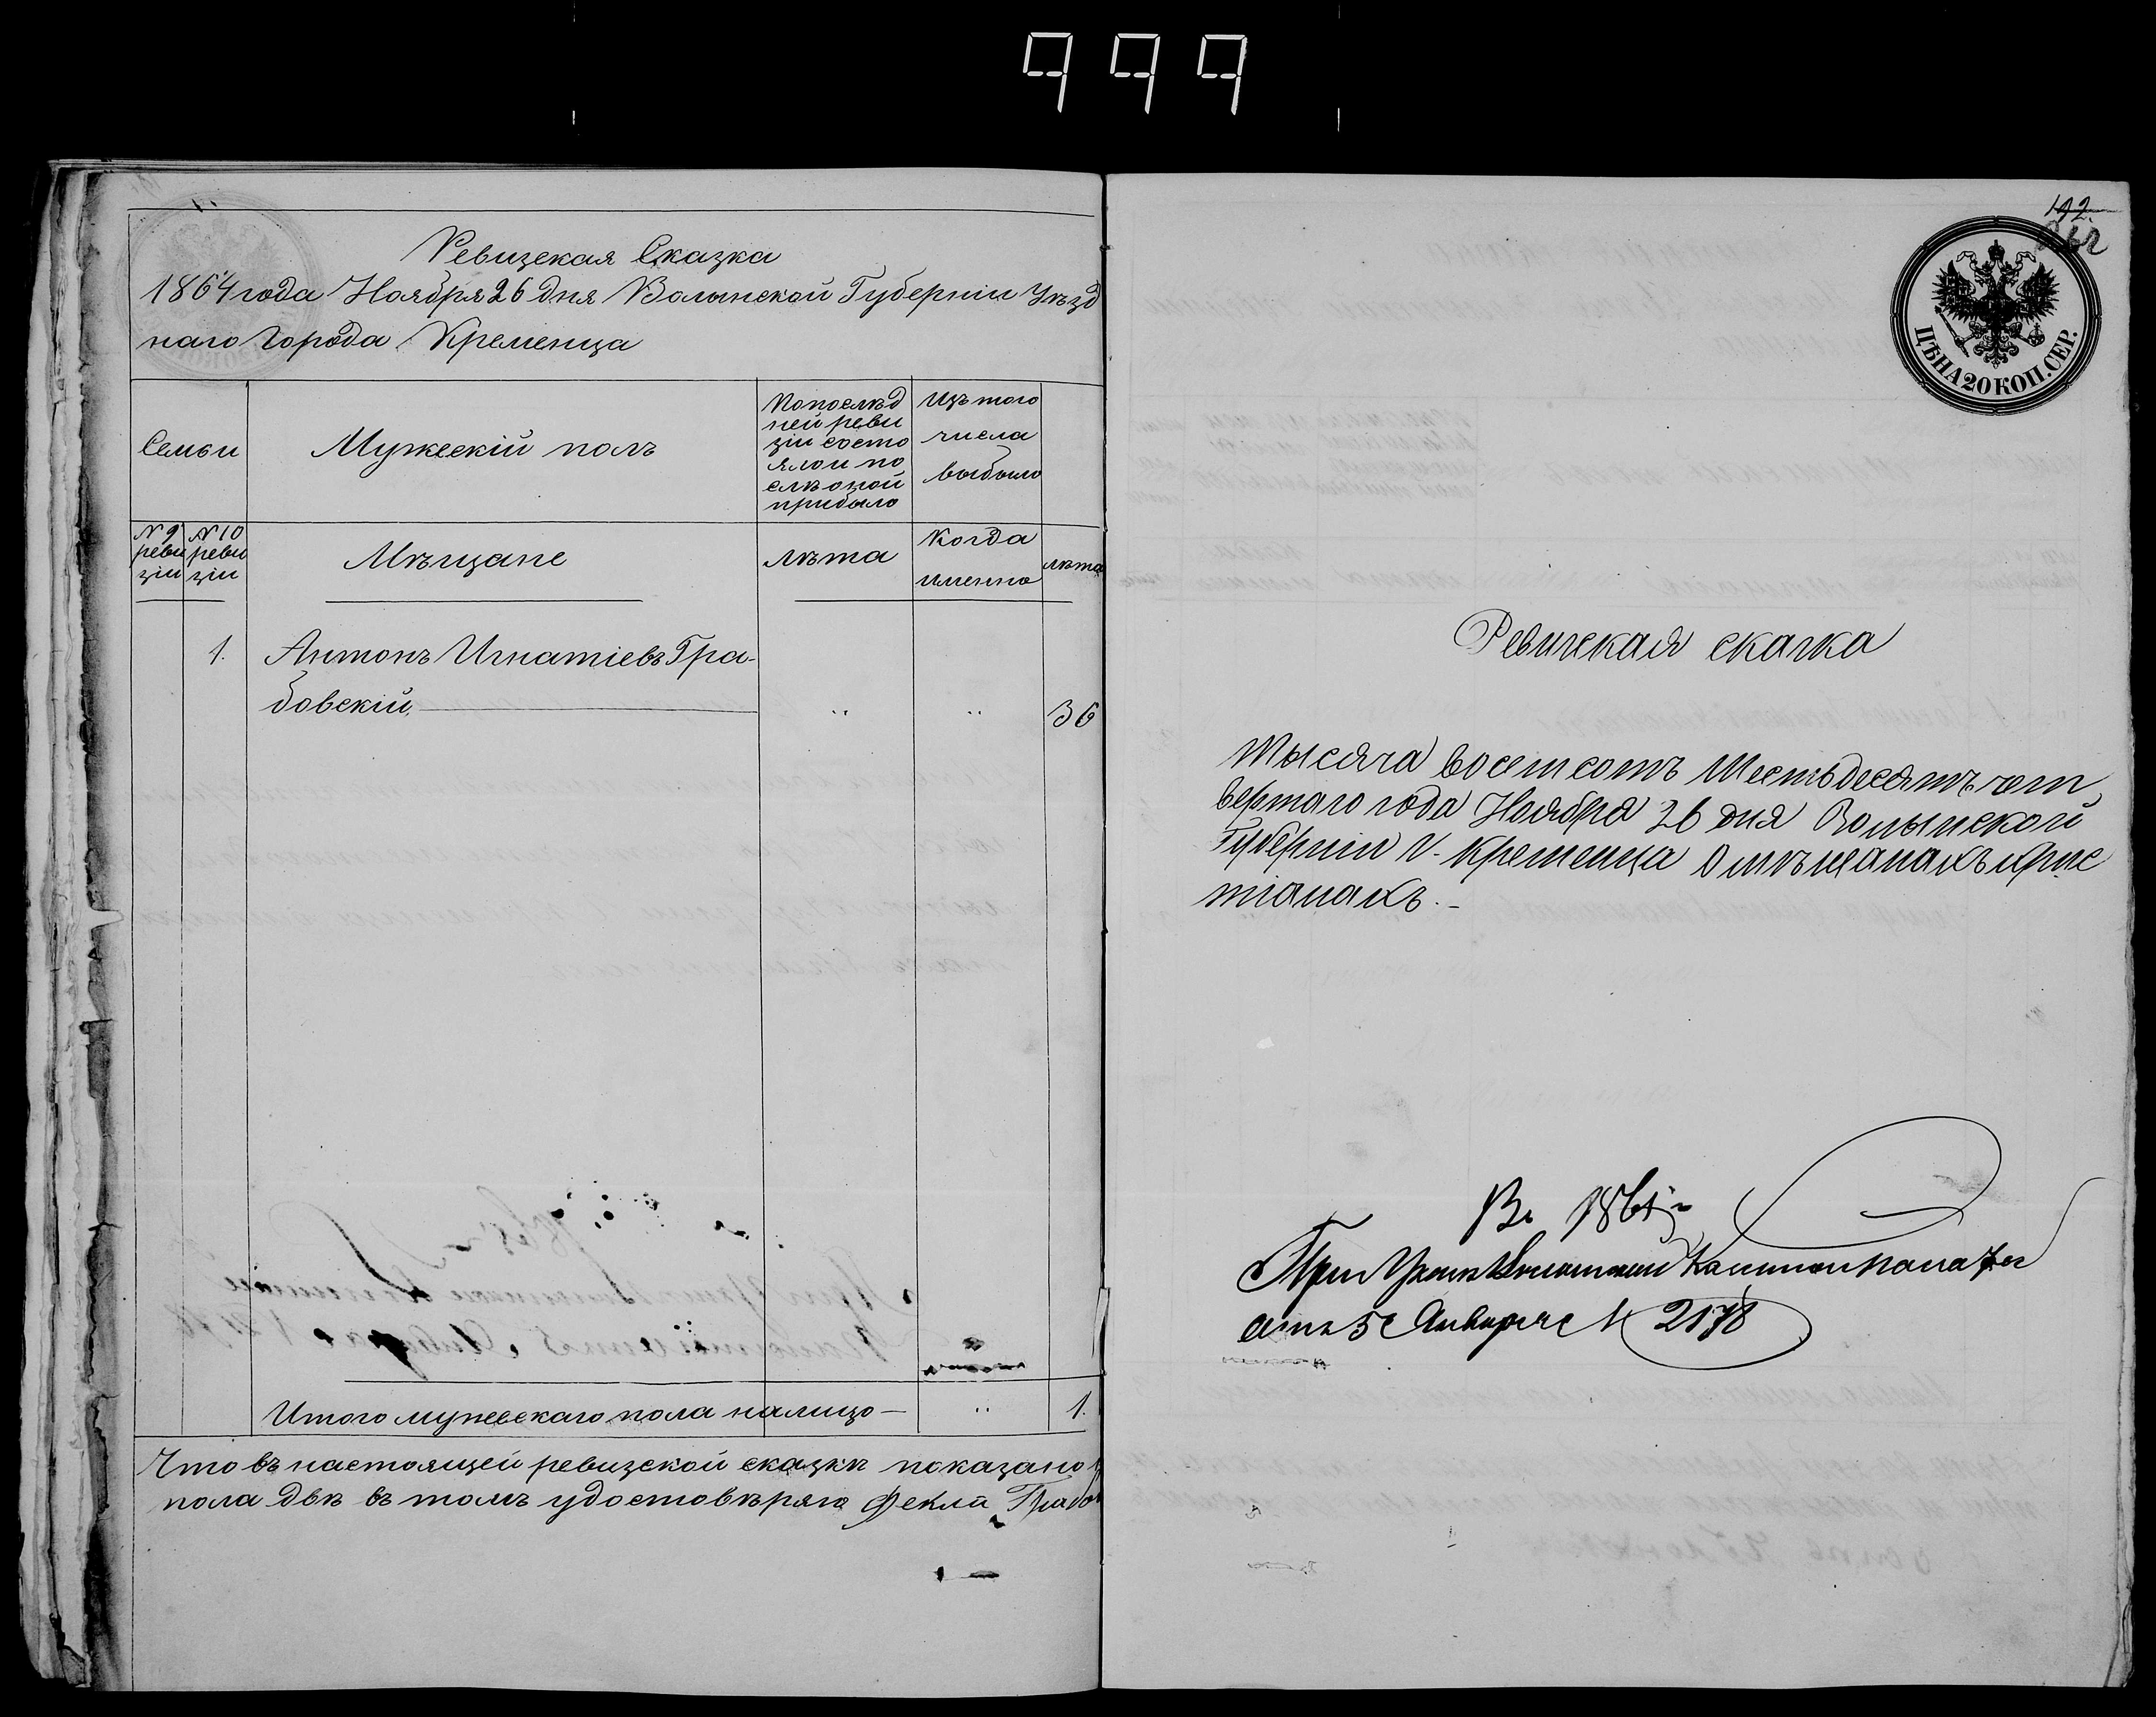 999
Ревизская Сказка
1864 года Ноября 26 дня Волынской Губерніи Уѣзд
наго Города Кременца
Семьи
Мужескій полъ
По послѣд
ней реви
зіи состо
яло и по
слѣ оной
прибыло
Изъ того
числа
выбыло
№ 9
реви
зіи
№ 10
реви
зіи
Мѣщане
лѣта
Когда
именно
лѣта
1.
Антонъ Игнатіевъ Гра-
бовскій
"
"
36
Итого мужескаго пола налицо — " 1.
Что въ настоящей ревизской сказкѣ показано
пола двѣ въ томъ удостовѣряю Грабов
192.
262
ЦѢНА 20 КОП. СЕР.
Ревизская сказка
Тысяча восемсотъ Шестьдесятъ чет
вертаго года Ноября 26 дня Волынской
Губерніи г. Кременца О мѣщанахъ хрис
тіанахъ. -
При Указѣ Волынской Казенной Палаты
отъ 5 Января № 2178